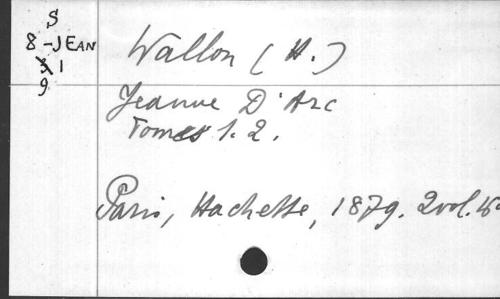 S
8 -JEAN
1
9
Wallon (H.)
Jeanne D'Arc
Tomes 1. 2.
Paris, Hachette, 1879. 2 vol.